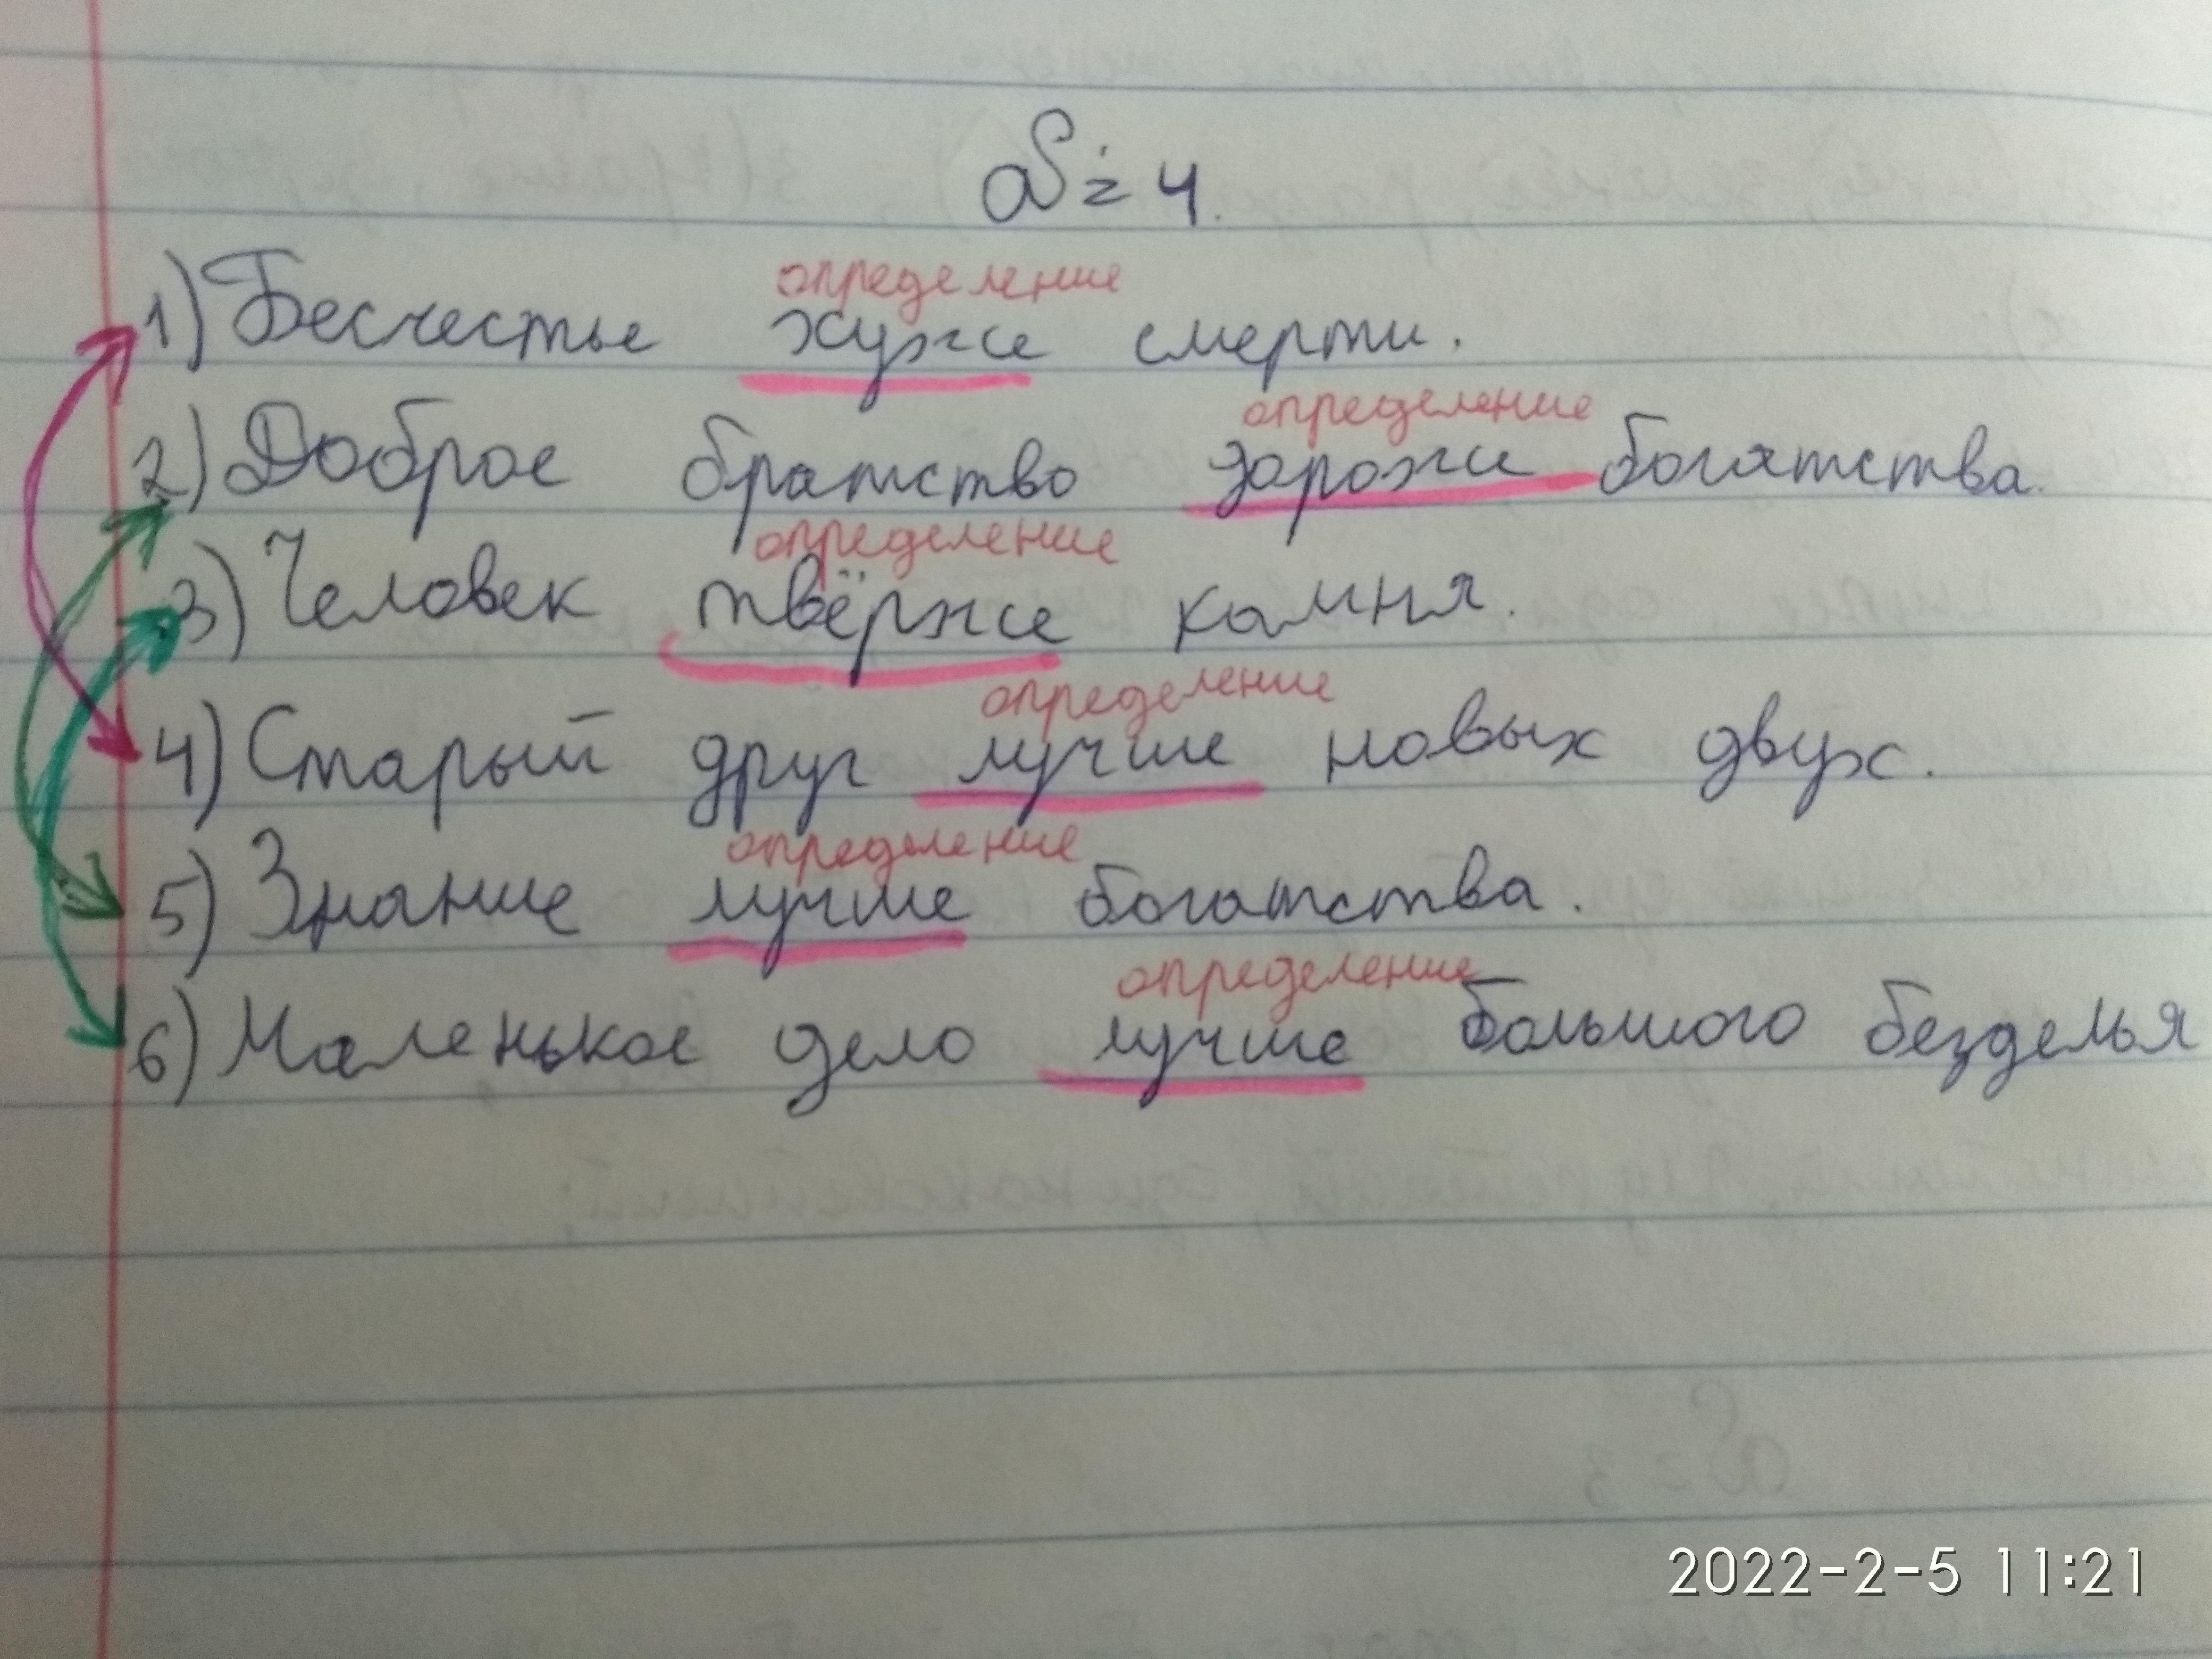 № 4.
определение
1) Бесчестье хуже смерти.
определение
2) Доброе братство дороже богатства.
определение
3) Человек твёрже камня.
определение
4) Старый друг лучше новых двух.
определение
5) Знание лучше богатства.
определение
6) Маленькое дело лучше большого безделья
2022-2-5 11:21